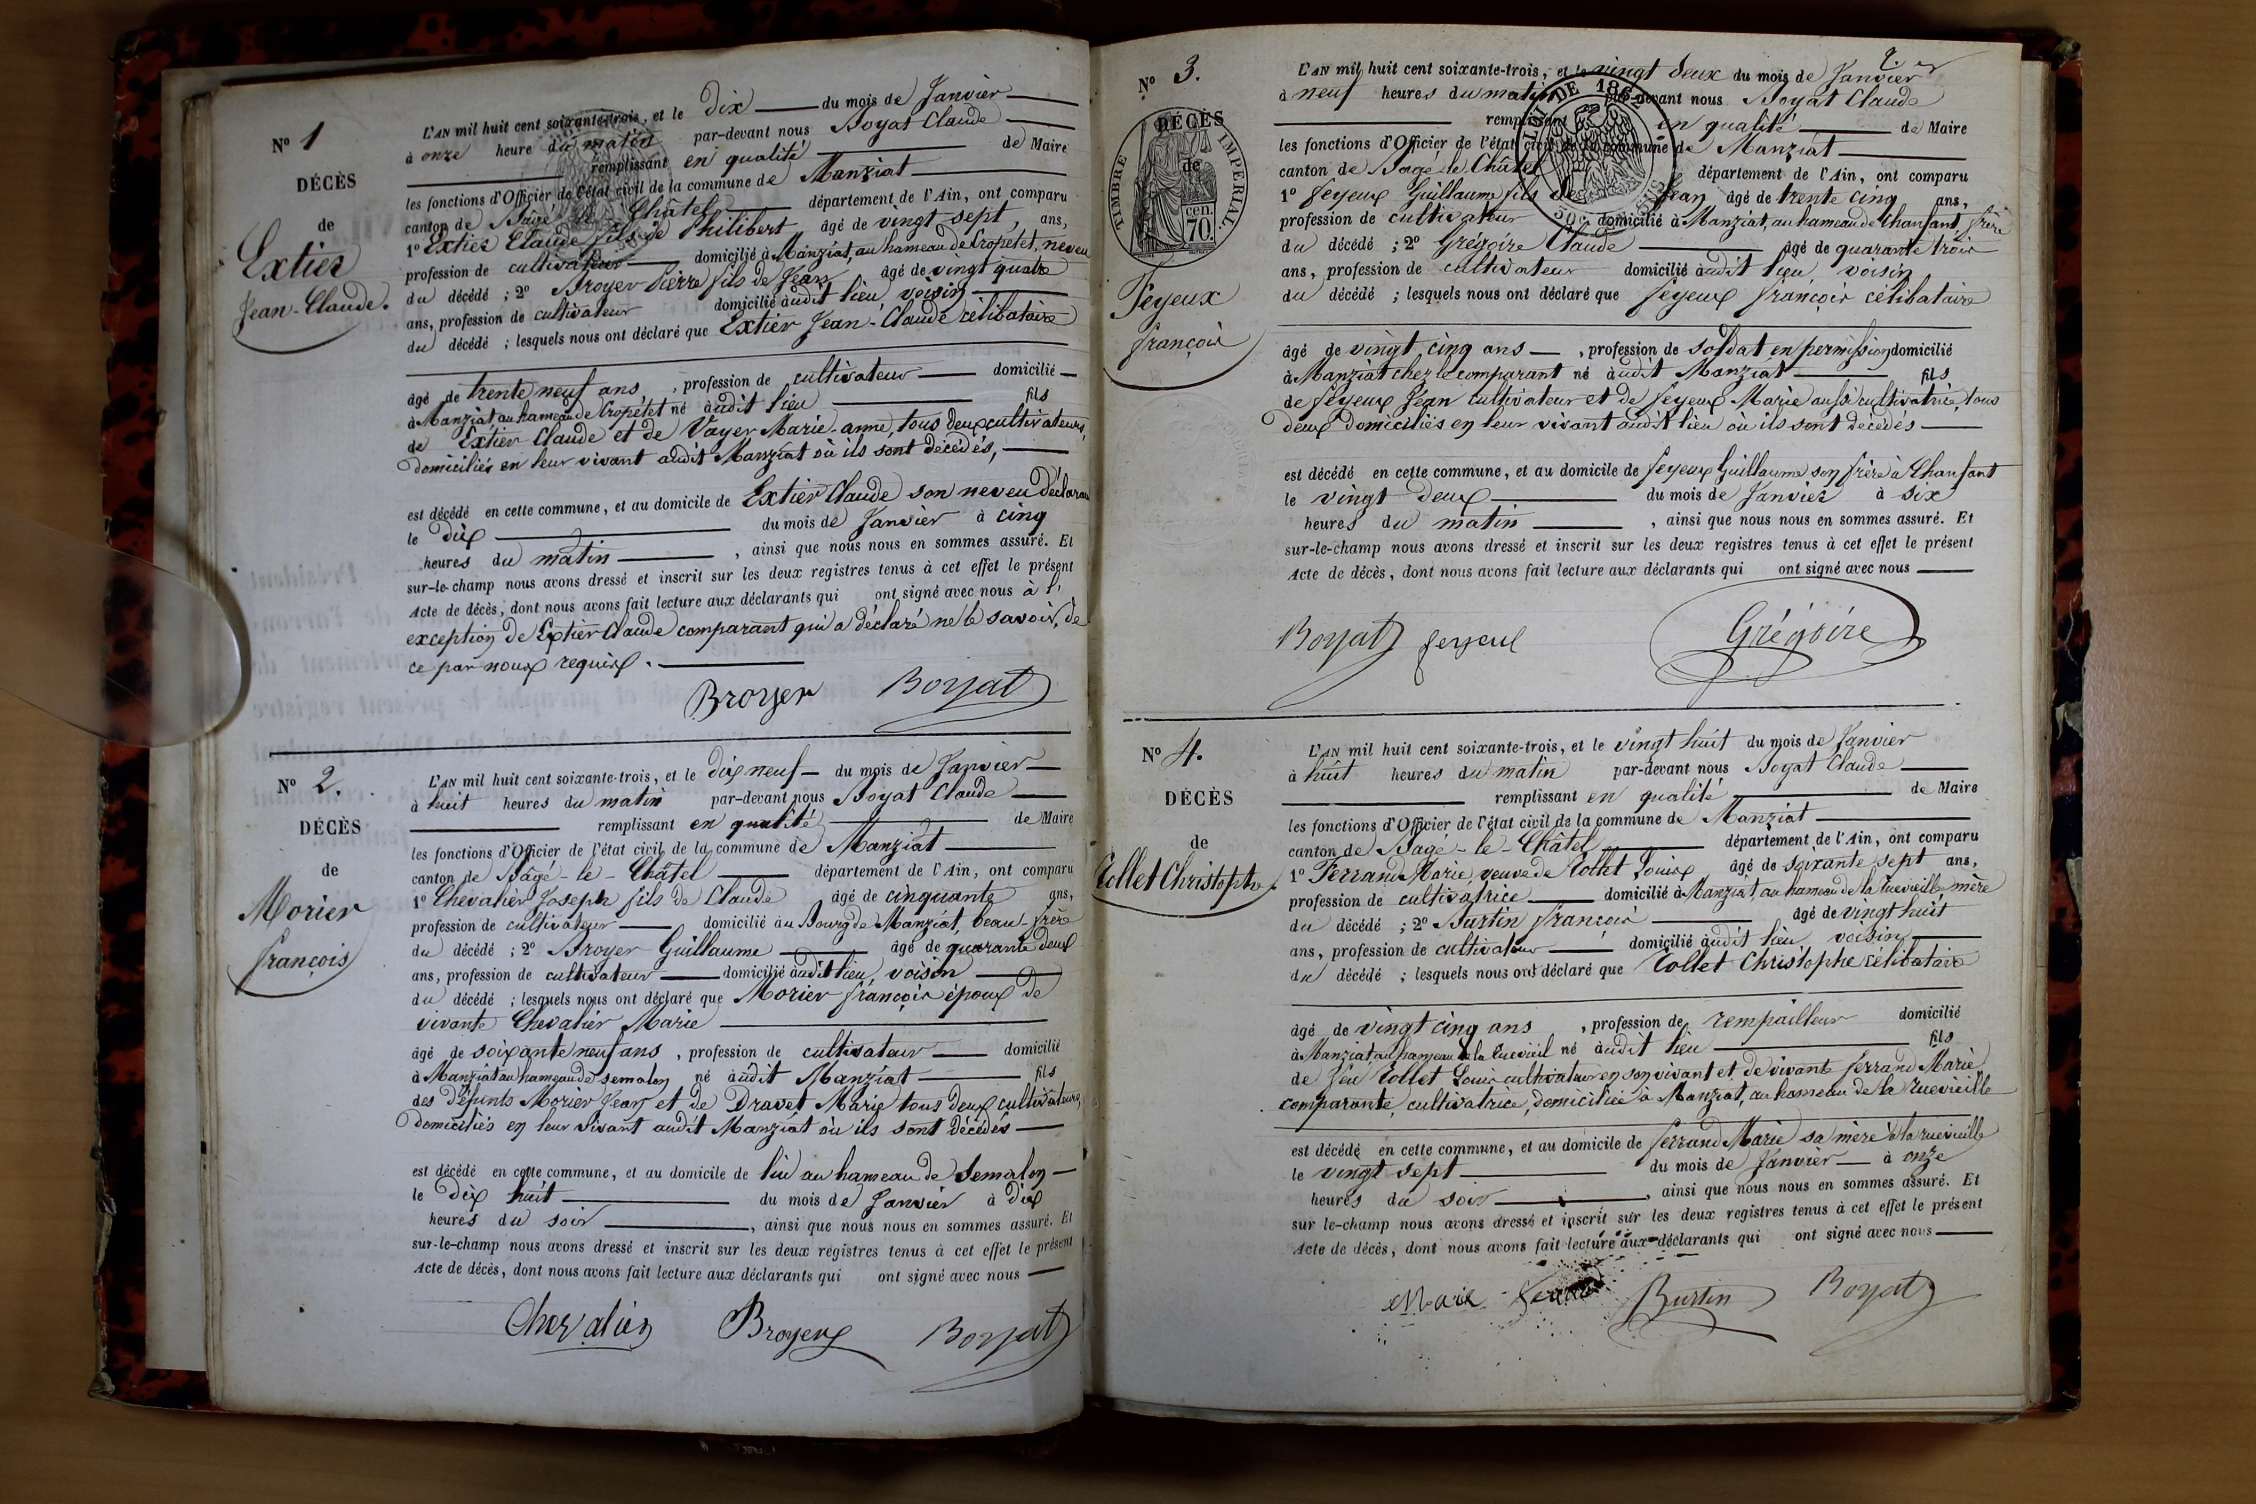 N° 1
DÉCÈS
de
Extier
Jean-Claude.
L'AN mil huit cent soixante-trois, et le dix du mois de Janvier
à onze heure du matin par-devant nous Boyat Claude
remplissant en qualité de Maire
les fonctions d'Officier de l'état civil de la commune de Manziat
canton de Bâgé-le-Châtel département de l'Ain, ont comparu
1° Extier Claude fils de Philibert âgé de vingt sept, ans,
profession de cultivateur domicilié à Manziat, au hameau de Cropetet, neveu
du décédé ; 2° Broyer Pierre fils de Jean âgé de vingt quatre
ans, profession de cultivateur domicilié audit lieu, voisin
du décédé ; lesquels nous ont déclaré que Extier Jean-Claude célibataire
âgé de trente neuf ans, profession de cultivateur domicilié
à Manziat, au hameau de Cropetet né audit lieu fils
de Extier Claude et de Vayer Marie-anne, tous deux cultivateurs,
domiciliés en leur vivant audit Manziat où ils sont décédés,
est décédé en cette commune, et au domicile de Extier Claude son neveu déclarant
le dix du mois de Janvier à cinq
heures du matin , ainsi que nous nous en sommes assuré. Et
sur-le-champ nous avons dressé et inscrit sur les deux registres tenus à cet effet le présent
Acte de décès, dont nous avons fait lecture aux déclarants qui ont signé avec nous à l'
exception de Extier Claude comparant qui a déclaré ne le savoir, de
ce par nous requis.
Broyer Boyat
N° 2.
DÉCÈS
de
Morier
françois
L'AN mil huit cent soixante-trois, et le dix neuf du mois de Janvier
à huit heures du matin par-devant nous Boyat Claude
remplissant en qualité de Maire
les fonctions d'Officier de l'état civil de la commune de Manziat
canton de Bâgé-le-Châtel département de l'Ain, ont comparu
1° Chevalier Joseph fils de Claude âgé de cinquante ans,
profession de cultivateur domicilié au Bourg de Manziat, beau-frère
du décédé ; 2° Broyer Guillaume âgé de quarante deux
ans, profession de cultivateur domicilié audit lieu, voisin
du décédé ; lesquels nous ont déclaré que Morier françois époux de
vivante Chevalier Marie
âgé de soixante neuf ans , profession de cultivateur domicilié
à Manziat au hameau de semalon né audit Manziat fils
des défunts Morier Jean et de Dravet Marie tous deux cultivateurs,
domiciliés en leur vivant audit Manziat où ils sont décédés
est décédé en cette commune, et au domicile de lui au hameau de Semalon
le dix huit du mois de Janvier à dix
heures du soir , ainsi que nous nous en sommes assuré. Et
sur-le-champ nous avons dressé et inscrit sur les deux registres tenus à cet effet le présent
Acte de décès, dont nous avons fait lecture aux déclarants qui ont signé avec nous
Chevalier Broyer Boyat
2.
N° 3.
DÉCÈS
de
TIMBRE IMPÉRIAL.
cen.
70.
Feyeux
françois
L'AN mil huit cent soixante-trois, et le vingt deux du mois de Janvier
à neuf heures du matin par-devant nous Boyat Claude
remplissant en qualité de Maire
les fonctions d'Officier de l'état civil de la commune de Manziat
canton de Bâgé-le-Châtel département de l'Ain, ont comparu
1° feyeux Guillaume fils de Jean âgé de trente cinq ans,
profession de cultivateur domicilié à Manziat, au hameau de Chanfant, frère
du décédé ; 2° Grégoire Claude âgé de quarante trois
ans, profession de cultivateur domicilié audit lieu voisin
du décédé ; lesquels nous ont déclaré que feyeux françois célibataire
âgé de vingt cinq ans , profession de soldat en permission domicilié
à Manziat chez le comparant né audit Manziat fils
de feyeux Jean cultivateur et de feyeux Marie aussi cultivatrice, tous
deux domiciliés en leur vivant audit lieu où ils sont décédés
est décédé en cette commune, et au domicile de feyeux Guillaume son frère à Chanfant
le vingt deux du mois de Janvier à six
heures du matin , ainsi que nous nous en sommes assuré. Et
sur-le-champ nous avons dressé et inscrit sur les deux registres tenus à cet effet le présent
Acte de décès, dont nous avons fait lecture aux déclarants qui ont signé avec nous
Boyat feyeux Grégoire
N° 4.
DÉCÈS
de
Collet Christophe
L'AN mil huit cent soixante-trois, et le vingt huit du mois de Janvier
à huit heures du matin par-devant nous Boyat Claude
remplissant en qualité de Maire
les fonctions d'Officier de l'état civil de la commune de Manziat
canton de Bâgé-le-Châtel département de l'Ain, ont comparu
1° Ferrand Marie, veuve de Collet Louis âgé de soixante sept ans,
profession de cultivatrice domicilié à Manziat, au hameau de la ruevieille mère
du décédé ; 2° Burtin françois âgé de vingt huit
ans, profession de cultivateur domicilié audit lieu voisin
du décédé ; lesquels nous ont déclaré que Collet Christophe célibataire
âgé de vingt cinq ans , profession de rempailleur domicilié
à Manziat au hameau de la ruevieil né audit lieu fils
de feu Collet Louis cultivateur en son vivant et de vivante ferrand Marie
comparante, cultivatrice, domiciliée à Manziat, au hameau de la ruevieille
est décédé en cette commune, et au domicile de ferrand Marie sa mère à la ruevieille
le vingt sept du mois de Janvier à onze
heures du soir , ainsi que nous nous en sommes assuré. Et
sur le-champ nous avons dressé et inscrit sur les deux registres tenus à cet effet le présent
Acte de décès, dont nous avons fait lecture aux déclarants qui ont signé avec nous
Burtin Boyat